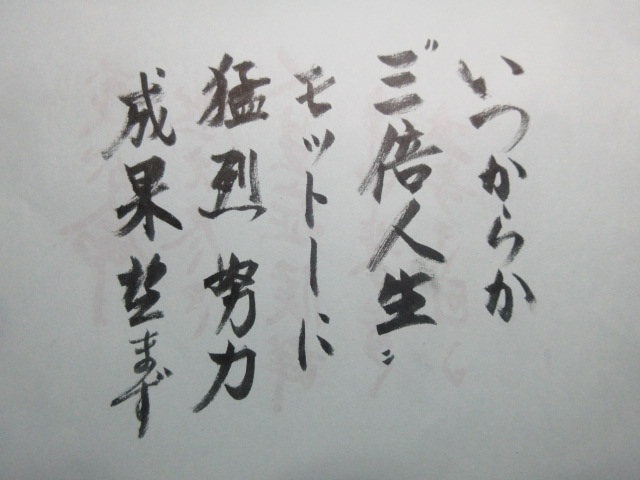 いつからか
〝三倍人生〟
モットーに
猛烈努力
成果望まず